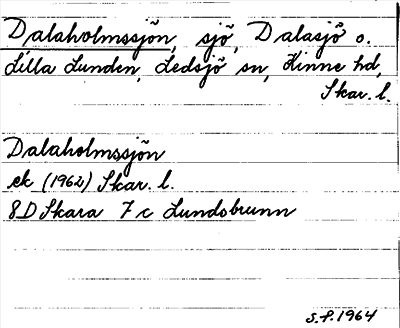 Dalaholmssjön, sjö, Dalasjö o.
Lilla Lunden, Ledsjö sn, Kinne hd,
Skar. l.
Dalaholmssjön
ek (1962) Skar. l.
8D Skara 7c Lundsbrunn
S.P. 1964